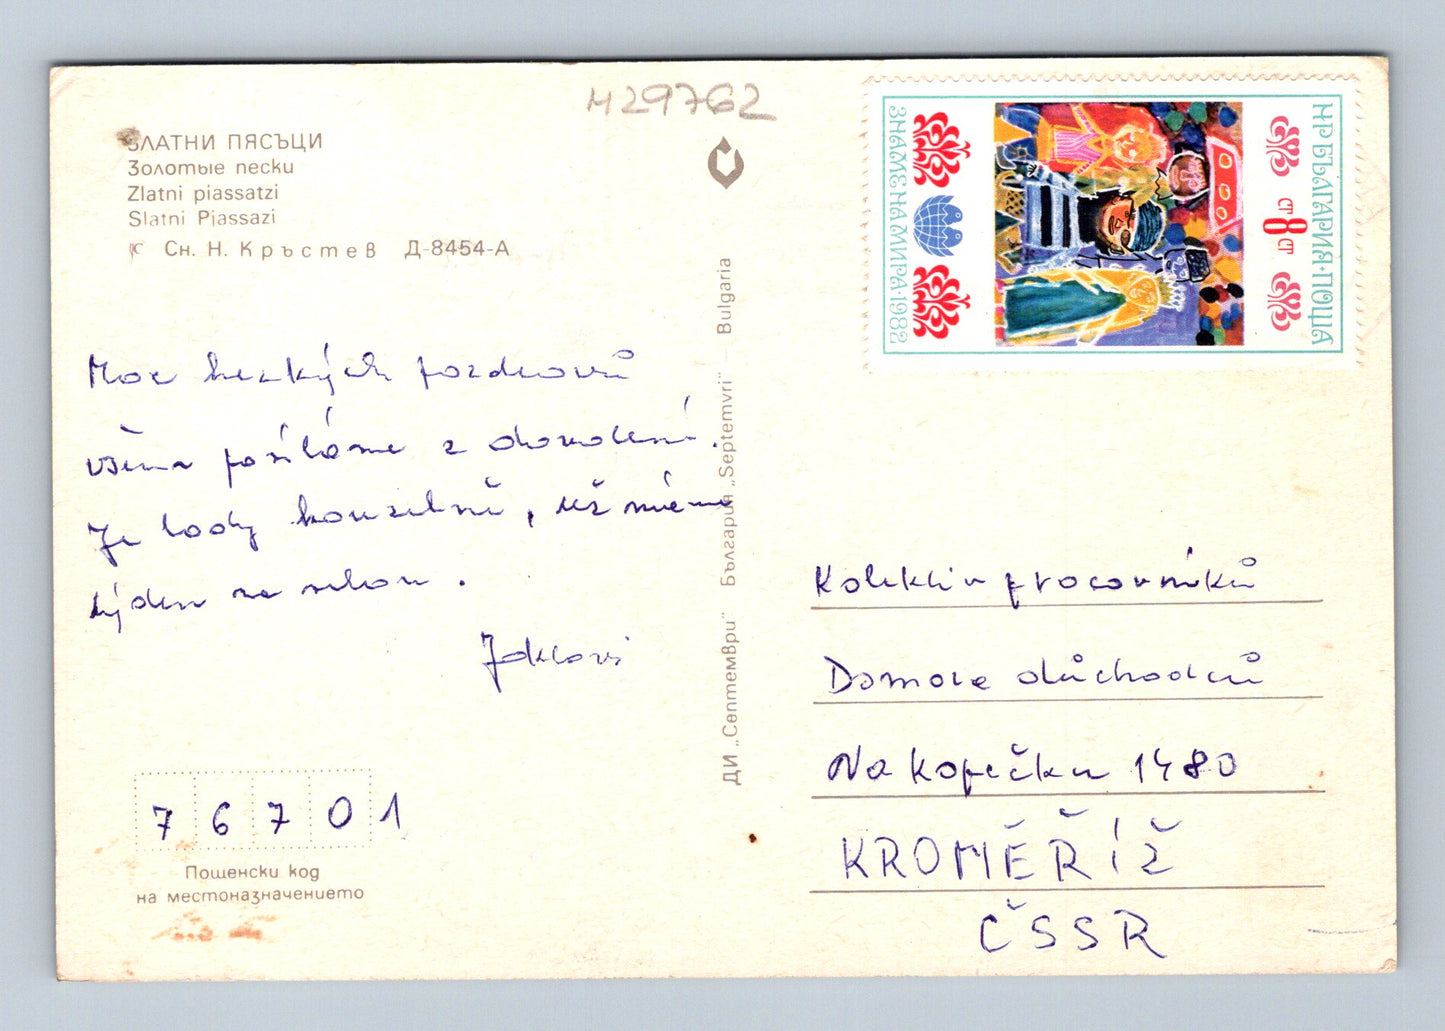 M29762
ЗЛАТНИ ПЯСЪЦИ
Золотые пески
Zlatni piassatzi
Slatni Pjassazi
Сн. Н. Кръстев Д-8454-А
Moc hezkých pozdravů
všem posíláme z dovolené.
Je tady kouzelně, už máme
týden za sebou.
Joklovi
76701
Пощенски код
на местоназначението
ДИ „Септември" България „Septemvri" – Bulgaria
НР БЪЛГАРИЯ·ПОЩА
8 СТ СТ
ЗНАМЕ НА МИРА·1982
Kolektiv pracovníků
Domova důchodců
Na kopečku 1480
KROMĚŘÍŽ
ČSSR